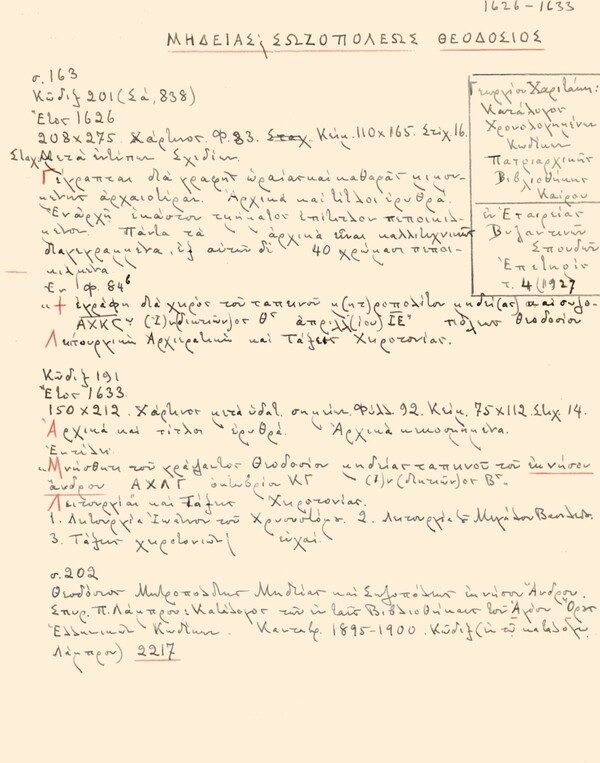 1626-1633
ΜΗΔΕΙΑΣ, ΣΩΖΟΠΟΛΕΩΣ ΘΕΟΔΟΣΙΟΣ
σ. 163
Κῶδιξ 201 (Σά, 838)
Ἔτος 1626
208×275. Χάρτινος. Φ. 83. Κείμ. 110×165. Στίχ. 16.
Σταχ. Μετὰ ἐντύπων Σχεδίων.
Γέγραπται διὰ γραφῆς ὡραίας καὶ καθαρᾶς
ἀρχαιοτέραν. Ἀρχικὰ καὶ τίτλοι ἐρυθρά.
Ἐν ἀρχῇ ἑκάστου τμήματος ἐπίτιτλον πεποικιλ-
μένον. Πάντα τὰ ἀρχικὰ εἶναι καλλιτεχνικῶς
διαγεγραμμένα, ἐξ αὐτῶν δὲ 40 χρώμασι πεποι-
κιλμένα
Ἐν φ. 84β
«+ ἐγράφη διὰ χειρὸς τοῦ ταπεινοῦ μ(ητ)ροπολίτου μηδεί(ας) καὶ σωζο-
ΑΧΚΣ (Ἰ)νδικτιῶν)ος Θ ἀπριλλ(ίου) ΙΕ πόλεως Θεοδοσίου
Λειτουργικὸν Ἀρχιερατικὸν καὶ Τάξεις Χειροτονίας.
Γεωργίου Χαριτάκη:
Κατάλογος
Χρονολογημένων
Κωδίκων
Πατριαρχικῆς
Βιβλιοθήκης
Καΐρου
ἐν Ἑταιρείας
Βυζαντινῶν
Σπουδῶν
Ἐπετηρίς
τ. 4 (1927
Κῶδιξ 191
Ἔτος 1633.
150×212. Χάρτινος μετὰ ὑδατ. σημείων. Φύλλ 92. Κείμ. 75×112. Στίχ. 14.
Ἀρχικὰ καὶ τίτλοι ἐρυθρά. Ἀρχικὰ κεκοσμημένα.
Ἐν τέλει:
«Μνήσθητι τοῦ γράψαντος Θεοδοσίου μηδείας ταπεινοῦ τοῦ ἐν νήσου
ἄνδρου ΑΧΛΓ ὀκτωβρίου ΚΓ (Ἰ)ν(δικτιῶν)ος Β".
Λειτουργίαι καὶ Τάξεις Χειροτονίας.
1. Λειτουργία Ἰωάννου τοῦ Χρυσοστόμου. 2. Λειτουργία Μεγάλου Βασιλείου.
3. Τάξεις χειροτονιῶν εὐχαί.
σ. 202
Θεοδόσιος Μητροπολίτης Μηδείας καὶ Σωζοπόλεως ἐν νήσου Ἄνδρου.
Σπυρ. Π. Λάμπρου: Κατάλογος τῶν ἐν ταῖς Βιβλιοθήκαις τοῦ Ἁγίου Ὄρους
Ἑλληνικῶν Κωδίκων. Κανταβρ. 1895-1900. Κῶδιξ (ἐν τῷ καταλόγῳ
Λάμπρου) 2217